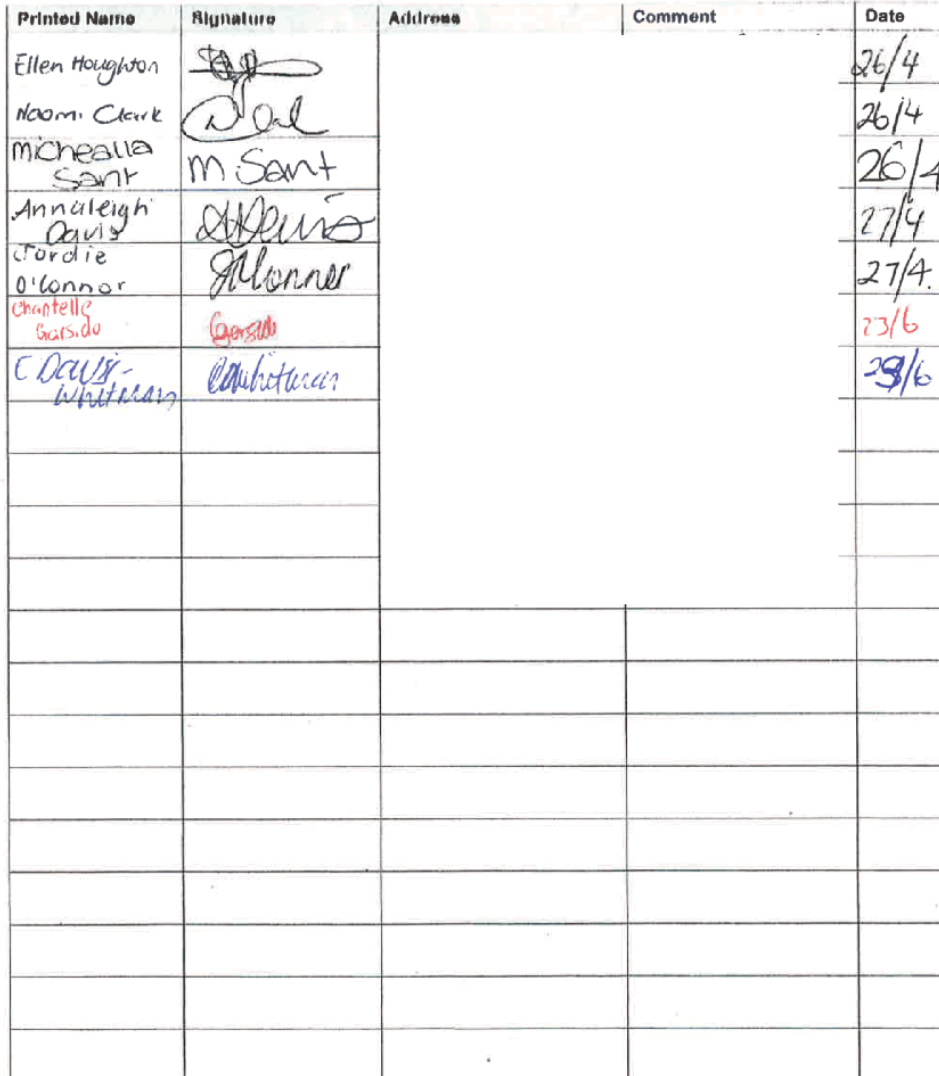 Printed Name Signature Address Comment Date
Ellen Houghton 26/4
Naomi Clark 26/4
Michealla
Sant M. Sant 26/4
Annaleigh
Davis ADavis 27/4
Jordie
O'Connor JO'Connor 27/4.
Chantelle
Garside Garside 23/6
C Davis-
Whiteman CDWhiteman /6